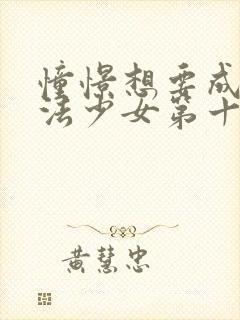 憧憬想要成
法少女第十
黄慧忠